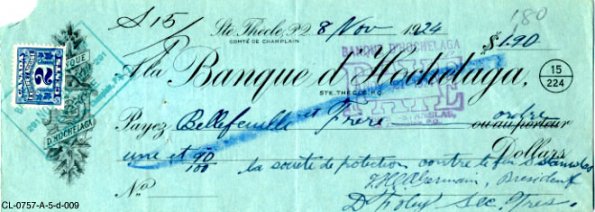 180
$ 15/
Ste. Thecle, P.Q. 8 Nov 1924
COMTÉ DE CHAMPLAIN
$1.90
BANQUE D'HOCHELAGA
CANADA
2
CENTS
A la Banque d'Hochelaga,
STE. THECLE, P.Q.
15
224
BANQUE
D'HOCHELAGA
Payez Bellefeuille et Frère ordre
ou au porteur
une et 90/100 Dollars
la société de protection contre le feu
No. President
D Foley Sec. Tres.
CL-0757-A-5-d-009